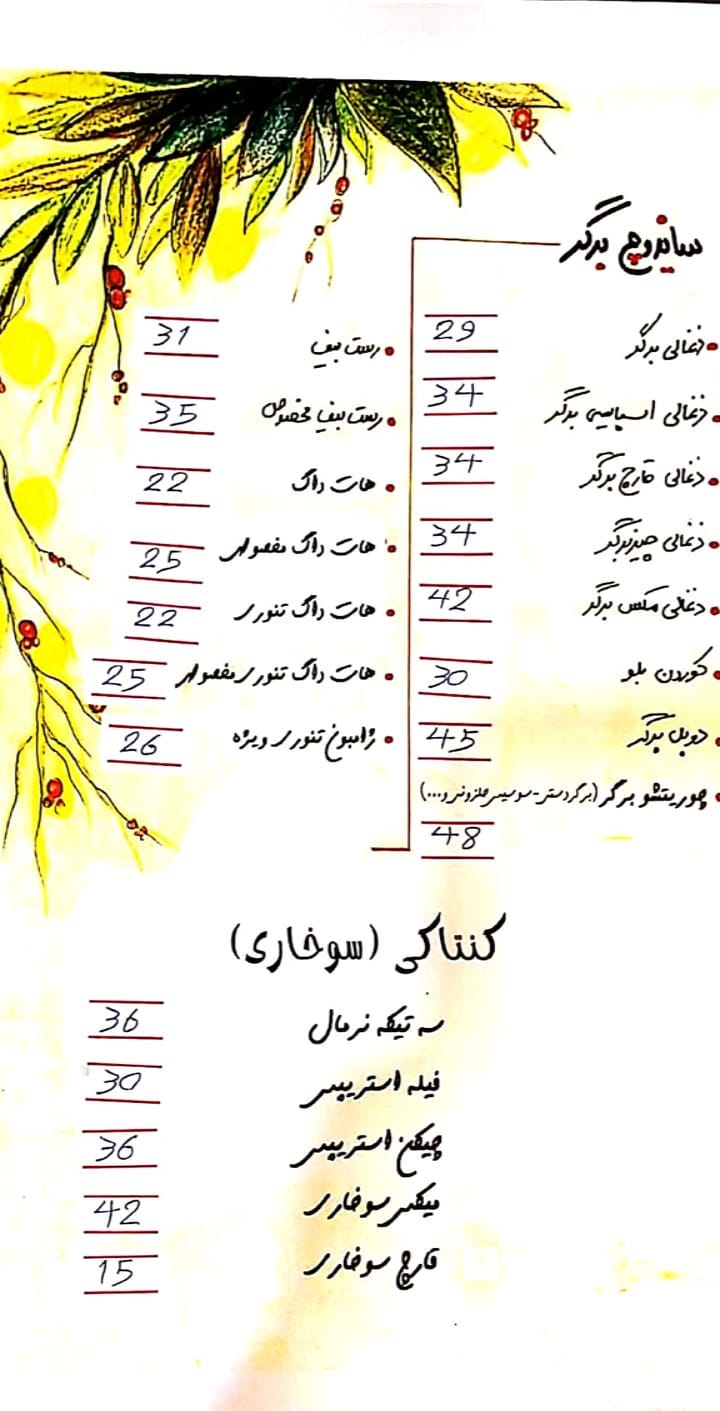 ساندویچ برگر
• ذغالی برگر 29
• ذغالی اسپایسی برگر 34
• ذغالی قارچ برگر 34
• ذغالی چیزبرگر 34
• ذغالی مکس برگر 42
• کوردن بلو 30
• دوبل برگر 45
• چوریتشو برگر (برگر دستی-سوسیس حلزونی و...)
48
• رست بیف 31
• رست بیف مخصوص 35
• هات داگ 22
• هات داگ مخصوص 25
• هات داگ تنوری 22
• هات داگ تنوری مخصوص 25
• ژامبون تنوری ویژه 26
کنتاکی (سوخاری)
سه تیکه نرمال 36
فیله استریپس 30
چیکن استریپس 36
میکس سوخاری 42
قارچ سوخاری 15